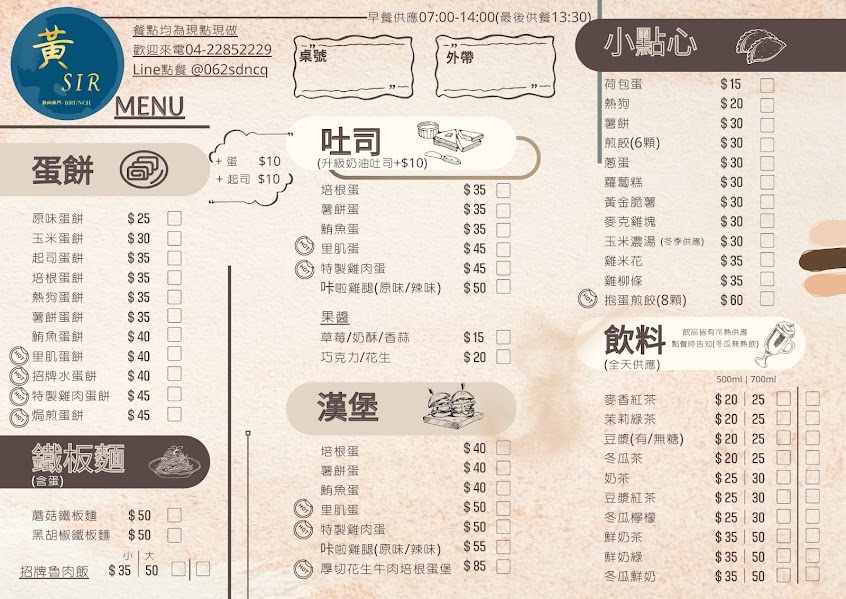 黃
SIR
魯肉專門-BRUNCH
餐點均為現點現做
歡迎來電04-22852229
Line點餐 @062sdncq
MENU
早餐供應07:00-14:00(最後供餐13:30)
桌號
外帶
蛋餅
+ 蛋 $10
+ 起司 $10
原味蛋餅 $25
玉米蛋餅 $30
起司蛋餅 $35
培根蛋餅 $35
熱狗蛋餅 $35
薯餅蛋餅 $35
鮪魚蛋餅 $40
HOT 里肌蛋餅 $40
HOT 招牌水蛋餅 $40
HOT 特製雞肉蛋餅 $45
HOT 焗煎蛋餅 $45
鐵板麵
(含蛋)
蘑菇鐵板麵 $50
黑胡椒鐵板麵 $50
小 | 大
招牌魯肉飯 $35 | 50
吐司
(升級奶油吐司+$10)
培根蛋 $35
薯餅蛋 $35
鮪魚蛋 $35
HOT 里肌蛋 $45
HOT 特製雞肉蛋 $45
咔啦雞腿(原味/辣味) $50
果醬
草莓/奶酥/香蒜 $15
巧克力/花生 $20
漢堡
培根蛋 $40
薯餅蛋 $40
鮪魚蛋 $40
HOT 里肌蛋 $50
HOT 特製雞肉蛋 $50
咔啦雞腿(原味/辣味) $55
HOT 厚切花生牛肉培根蛋堡 $85
小點心
荷包蛋 $15
熱狗 $20
薯餅 $30
煎餃(6顆) $30
蔥蛋 $30
蘿蔔糕 $30
黃金脆薯 $30
麥克雞塊 $30
玉米濃湯 (冬季供應) $30
雞米花 $35
雞柳條 $35
HOT 抱蛋煎餃(8顆) $60
飲料
(全天供應)
飲品皆有冷熱供應
點餐時告知(冬瓜無熱飲)
500ml | 700ml
麥香紅茶 $20 | 25
茉莉綠茶 $20 | 25
豆漿(有/無糖) $20 | 25
冬瓜茶 $20 | 25
奶茶 $25 | 30
豆漿紅茶 $25 | 30
冬瓜檸檬 $25 | 30
鮮奶茶 $35 | 50
鮮奶綠 $35 | 50
冬瓜鮮奶 $35 | 50